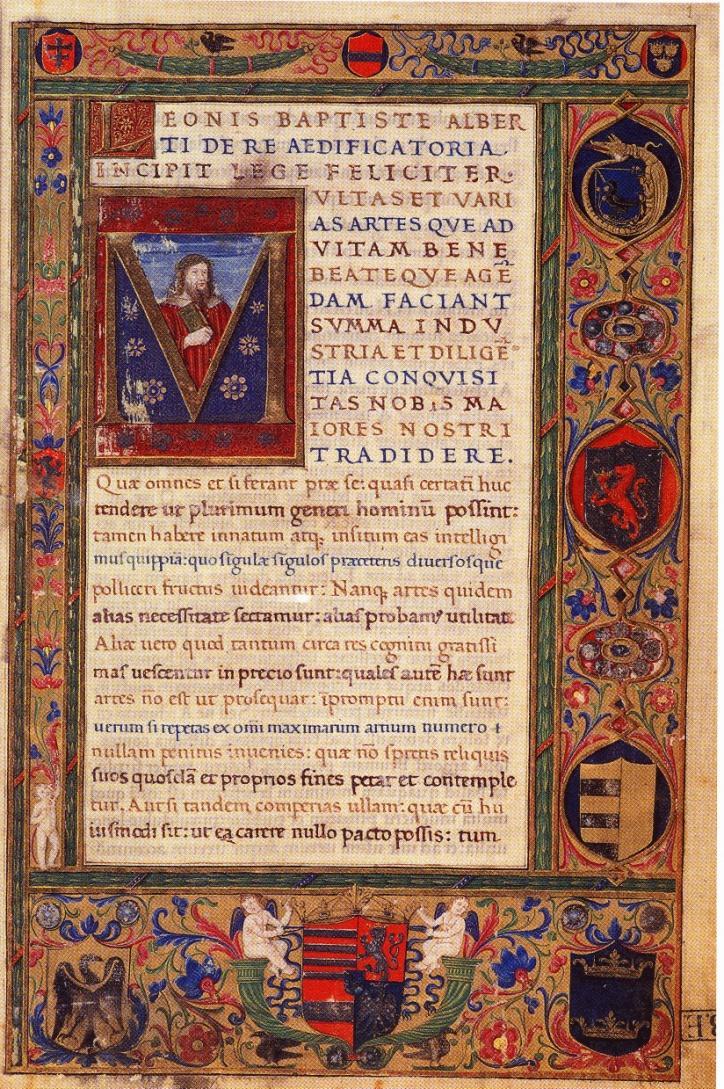 LEONIS BAPTISTE ALBER
TI DE RE AEDIFICATORIA.
INCIPIT LEGE FELICITER.
MVLTAS ET VARI
AS ARTES QVE AD
VITAM BENE
BEATEQVE AGĒ
DAM FACIANT
SVMMA INDV
STRIA ET DILIGĒ
TIA CONQVISI
TAS NOBIS MA
IORES NOSTRI
TRADIDERE.
Quæ omnes et si ferant præ se: quasi certatī huc
tendere ut plurimum generi hominū possint:
tamen habere innatum atq; insitum eas intelligi
mus quippiā: quo sīgulæ sīgulos præ ceteris diversosque
polliceri fructus uideantur: Nanq; artes quidem
alias necessitate sectamur: alias probam᷒ utilitate
Aliæ uero quod tantum circa res cognitu gratissi
mas uescentur in precio sunt: quales autē hæ sunt
artes nō est ut prosequar: īpromptu enim sunt:
uerum si repetas ex omī maximarum artium numero
nullam penitus inuenies: quæ nō spretis reliquis
suos quosdā et proprios fines petat et contemple
tur. Aut si tandem comperias ullam: quæ cū hu
iusmodi sit: ut ea carere nullo pacto possis: tum